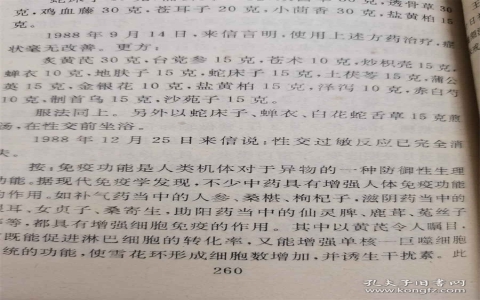 克，鸡血藤30克，苍耳子20克，小茴香30克，盐黄柏15
克。
1988年9月14日，来信言明，使用上述方药治疗，症
状毫无改善。更方：
炙黄芪30克，台党参15克，苍术10克，炒枳壳15克，
蝉衣10克，地肤子15克，蛇床子15克，土茯苓15克，蒲公
英15克，金银花10克，盐黄柏15克，泽泻10克，赤白芍
10克，制首乌15克，沙苑子15克。
服法同上。另外以蛇床子、蝉衣、白花蛇舌草15克煎
汤，在性交前坐浴。
1988年12月25日来信说：性交过敏反应已完全消
失。
按：免疫功能是人类机体对于异物的一种防御性生理
功能。据现代免疫学发现，不少中药具有增强人体免疫功能
的作用。如补气药当中的人参、桑椹、枸杞子，滋阴药当中的
耳、女贞子、桑寄生，助阳药当中的仙灵脾、鹿茸、菟丝子
等，都具有增强细胞免疫的作用。其中以黄芪令人瞩目，
既能促进淋巴细胞的转化率，又能增强单核—巨噬细胞
统的功能，使雪花环形成细胞数增加，并诱生干扰素。此
260
孔夫子旧书网
www.kongfz.com